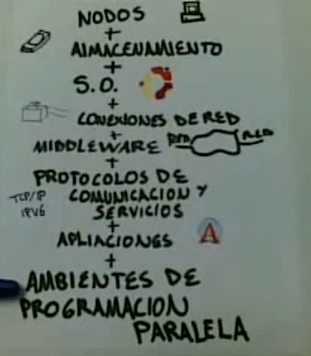 NODOS
+
ALMACENAMIENTO
+
S.O.
+
CONEXIONES DE RED
+
MIDDLEWARE RED RED
+
PROTOCOLOS DE
TCP/IP COMUNICACION Y
IPV6 SERVICIOS
+
APLIACIONES A
+
AMBIENTES DE
PROGRAMACION
PARALELA